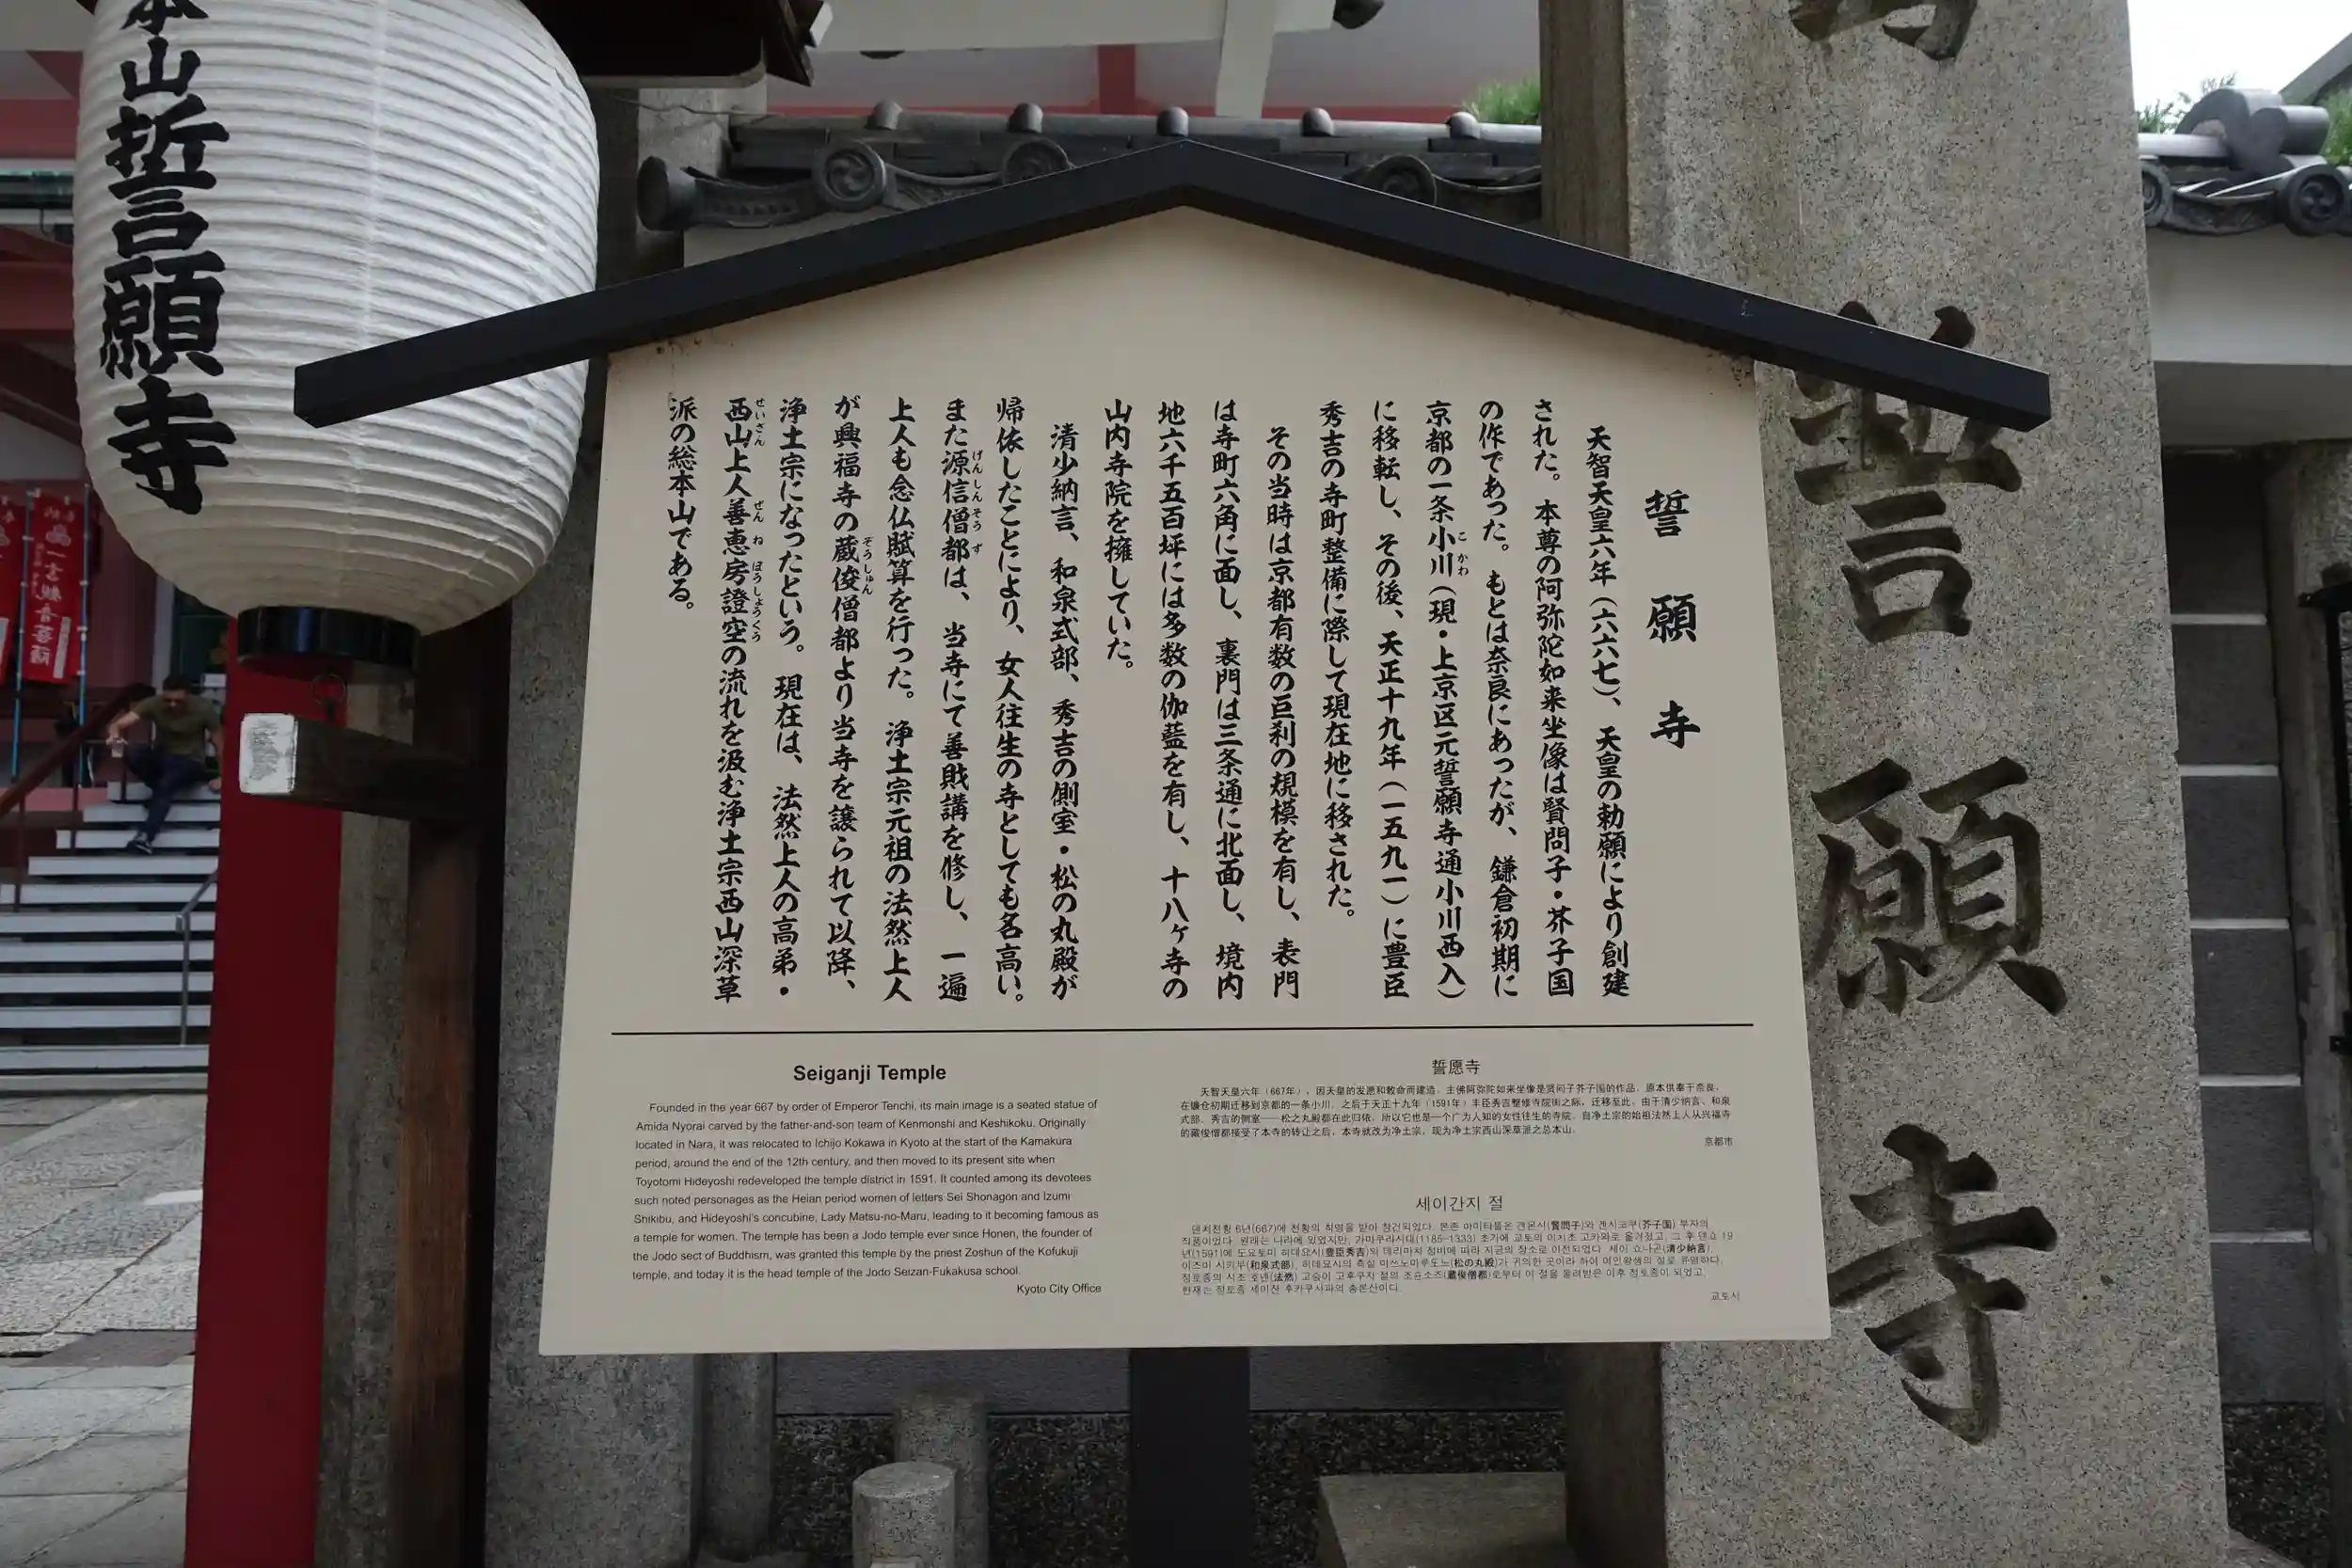 本山誓願寺
誓願寺
誓願寺
天智天皇六年(六六七)、天皇の勅願により創建
された。本尊の阿弥陀如来坐像は賢問子・芥子国
の作であった。もとは奈良にあったが、鎌倉初期に
京都の一条小川(現・上京区元誓願寺通小川西入)
こかわ
に移転し、その後、天正十九年(一五九一)に豊臣
秀吉の寺町整備に際して現在地に移された。
その当時は京都有数の巨刹の規模を有し、表門
は寺町六角に面し、裏門は三条通に北面し、境内
地六千五百坪には多数の伽藍を有し、十八ヶ寺の
山内寺院を擁していた。
清少納言、和泉式部、秀吉の側室・松の丸殿が
帰依したことにより、女人往生の寺としても名高い。
また源信僧都は、当寺にて善財講を修し、一遍
げんしんそうず
上人も念仏賦算を行った。浄土宗元祖の法然上人
が興福寺の蔵俊僧都より当寺を譲られて以降、
ぞうしゅん
浄土宗になったという。現在は、法然上人の高弟・
西山上人善恵房證空の流れを汲む浄土宗西山深草
せいざん ぜんねぼうしょうくう
派の総本山である。
Seiganji Temple
Founded in the year 667 by order of Emperor Tenchi, its main image is a seated statue of
Amida Nyorai carved by the father-and-son team of Kenmonshi and Keshikoku. Originally
located in Nara, it was relocated to Ichijo Kokawa in Kyoto at the start of the Kamakura
period, around the end of the 12th century, and then moved to its present site when
Toyotomi Hideyoshi redeveloped the temple district in 1591. It counted among its devotees
such noted personages as the Heian period women of letters Sei Shonagon and Izumi
Shikibu, and Hideyoshi's concubine, Lady Matsu-no-Maru, leading to it becoming famous as
a temple for women. The temple has been a Jodo temple ever since Honen, the founder of
the Jodo sect of Buddhism, was granted this temple by the priest Zoshun of the Kofukuji
temple, and today it is the head temple of the Jodo Seizan-Fukakusa school.
Kyoto City Office
誓愿寺
天智天皇六年（667年），因天皇的发愿和敕命而建造。主佛阿弥陀如来坐像是贤问子芥子国的作品。原本供奉于奈良，
在镰仓初期迁移到京都的一条小川。之后于天正十九年（1591年）丰臣秀吉整修寺院街之际，迁移至此。由于清少纳言、和泉
式部、秀吉的侧室——松之丸殿都在此归依，所以它也是一个广为人知的女性往生的寺院。自净土宗的始祖法然上人从兴福寺
的藏俊僧都接受了本寺的转让之后，本寺就改为净土宗，现为净土宗西山深草派之总本山。
京都市
세이간지 절
덴치천황 6년(667)에 천황의 칙명을 받아 창건되었다. 본존 아미타불은 겐몬시(賢問子)와 겐시코쿠(芥子国) 부자의
작품이었다. 원래는 나라에 있었지만, 가마쿠라시대(1185–1333) 초기에 교토의 이치조 고카와로 옮겨졌고, 그 후 덴쇼 19
년(1591)에 도요토미 히데요시(豊臣秀吉)의 데라마치 정비에 따라 지금의 장소로 이전되었다. 세이 쇼나곤(清少納言),
이즈미 시키부(和泉式部), 히데요시의 측실 마쓰노마루도노(松の丸殿)가 귀의한 곳이라 하여 여인왕생의 절로 유명하다.
정토종의 시조 호넨(法然) 고승이 고후쿠지 절의 조슌소즈(蔵俊僧都)로부터 이 절을 물려받은 이후 정토종이 되었고,
현재는 정토종 세이잔 후카쿠사파의 총본산이다.
교토시